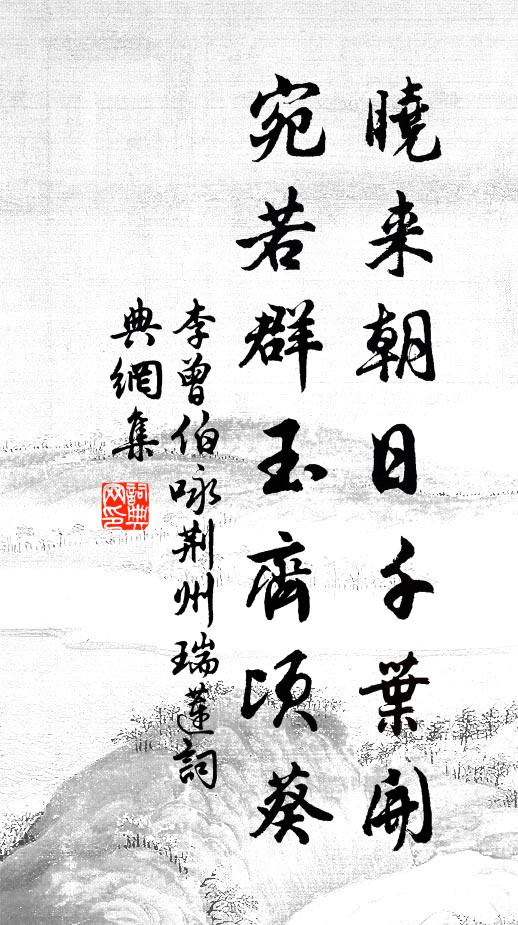 曉来朝日千葉開
宛若群玉齊頃葵
李曾伯咏荆州瑞蓮詞
典網集
詞典
网印